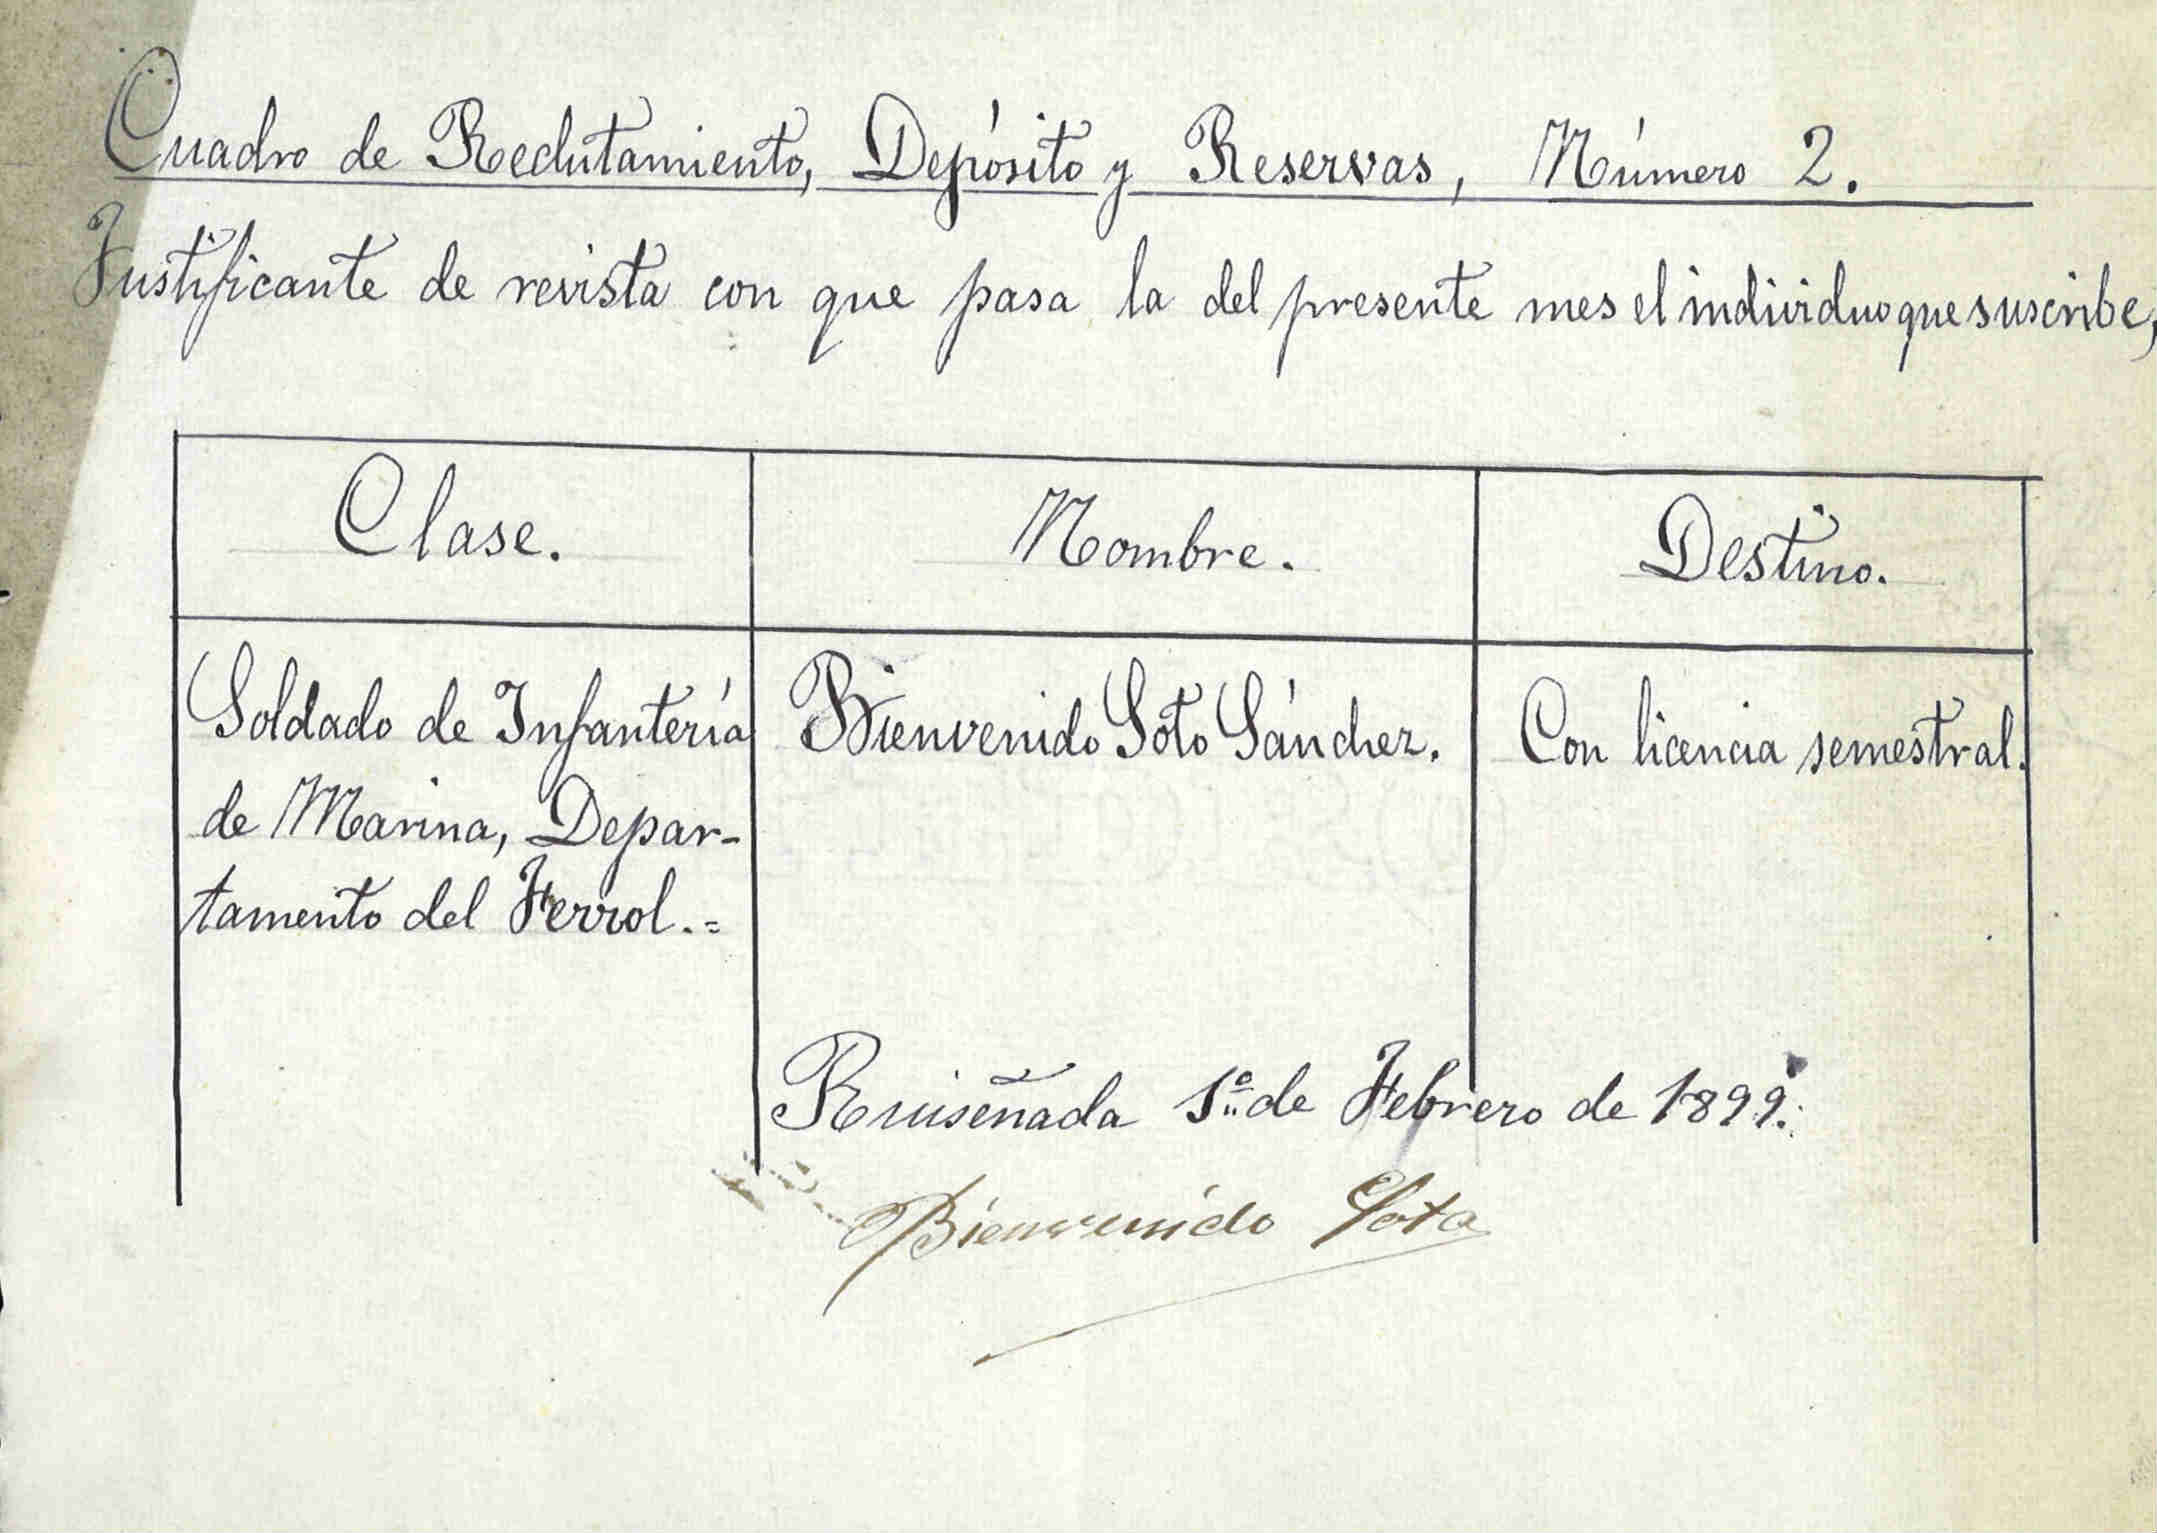 Cuadro de Reclutamiento, Depósito y Reservas, Número 2.
Justificante de revista con que pasa la del presente mes el individuo que suscribe,
Clase.
Nombre.
Destino.
Soldado de Infantería
de Marina, Depar-
tamento del Ferrol.=
Bienvenido Soto Sánchez.
Con licencia semestral.
Ruiseñada 1º de Febrero de 1899.
Bienvenido Soto